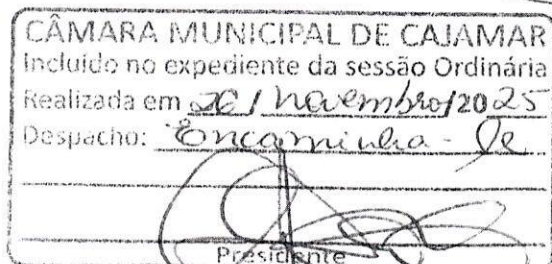 CÂMARA MUNICIPAL DE CAJAMAR
Incluído no expediente da sessão Ordinária
Realizada em 26 / novembro / 2025
Despacho: Encaminha-se
Presidente